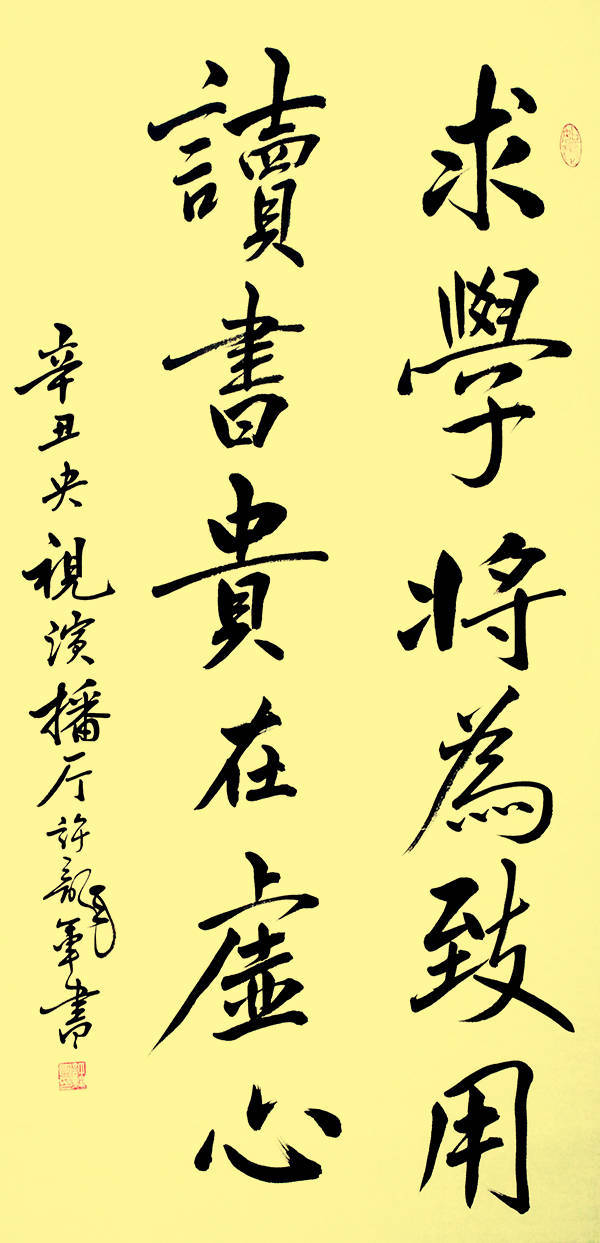 求學將為致用
讀書貴在虛心
辛丑央視演播厅許龍軍書